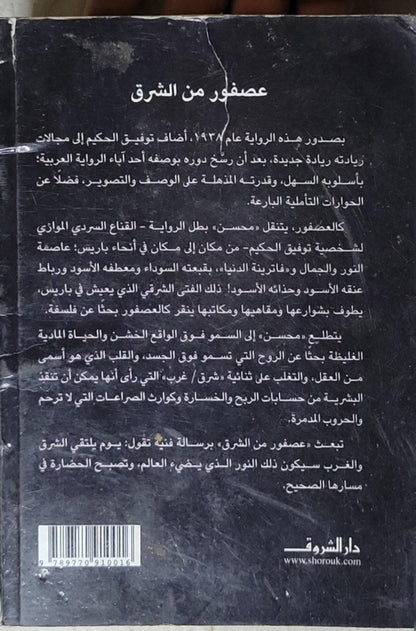 عصفور من الشرق
بصدور هذه الرواية عام ١٩٣٨، أضاف توفيق الحكيم إلى مجالات
ريادته ريادة جديدة، بعد أن رسَّخ دوره بوصفه أحد آباء الرواية العربية؛
بأسلوبه السهل، وقدرته المذهلة على الوصف والتصوير، فضلًا عن
الحوارات التأملية البارعة.
كالعصفور، يتنقل «محسن» بطل الرواية - القناع السردي الموازي
لشخصية توفيق الحكيم- من مكان إلى مكان في أنحاء باريس؛ عاصمة
النور والجمال و«فاترينة الدنيا»، بقبعته السوداء ومعطفه الأسود ورباط
عنقه الأسود وحذائه الأسود! ذلك الفتى الشرقي الذي يعيش في باريس،
يطوف بشوارعها ومقاهيها ومكاتبها ينقر كالعصفور بحثًا عن فلسفة.
يتطلع «محسن» إلى السمو فوق الواقع الخشن والحياة المادية
الغليظة بحثًا عن الروح التي تسمو فوق الجسد، والقلب الذي هو أسمى
من العقل، والتغلب على ثنائية «شرق/ غرب» التي رأى أنها يمكن أن تنقذ
البشرية من حسابات الربح والخسارة وكوارث الصراعات التي لا ترحم
والحروب المدمرة.
تبعث «عصفور من الشرق» برسالة فنية تقول: يوم يلتقي الشرق
والغرب سيكون ذلك النور الذي يضيء العالم، وتصبح الحضارة في
مسارها الصحيح.
دار الشروق
www.shorouk.com
9 789770 910016